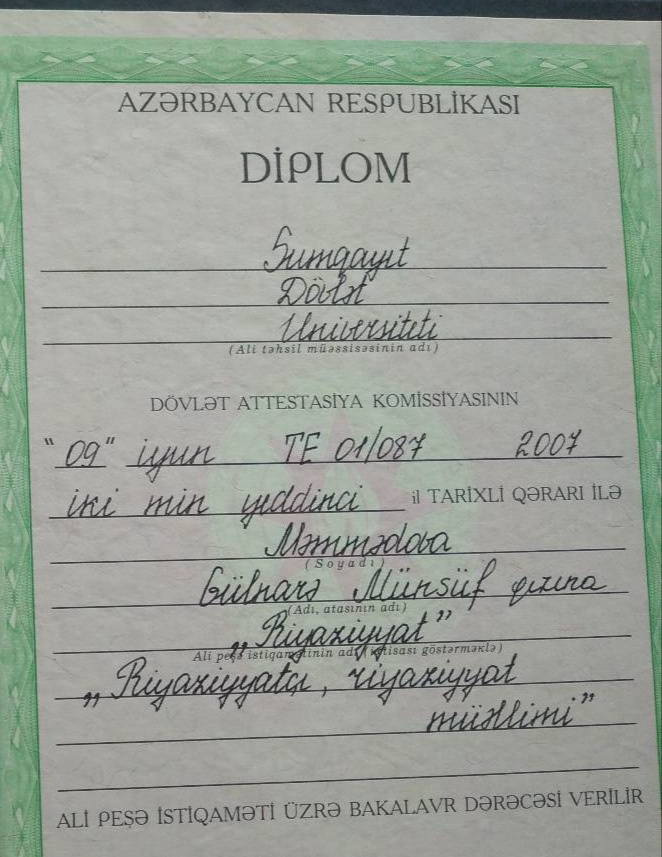 AZƏRBAYCAN RESPUBLİKASI
DİPLOM
Sumqayıt
Dövlət
Universiteti
(Ali təhsil müəssisəsinin adı)
DÖVLƏT ATTESTASİYA KOMİSSİYASININ
"09" iyun TE 01/087 2007
iki min yeddinci il TARİXLİ QƏRARI İLƏ
Məmmədova
(Soyadı)
Gülnarə Münsüf qızına
(Adı, atasının adı)
„Riyaziyyat”
Ali peşə istiqamətinin adı (ixtisası göstərməklə)
„Riyaziyyatçı, riyaziyyat
müəllimi”
ALİ PEŞƏ İSTİQAMƏTİ ÜZRƏ BAKALAVR DƏRƏCƏSİ VERİLİR